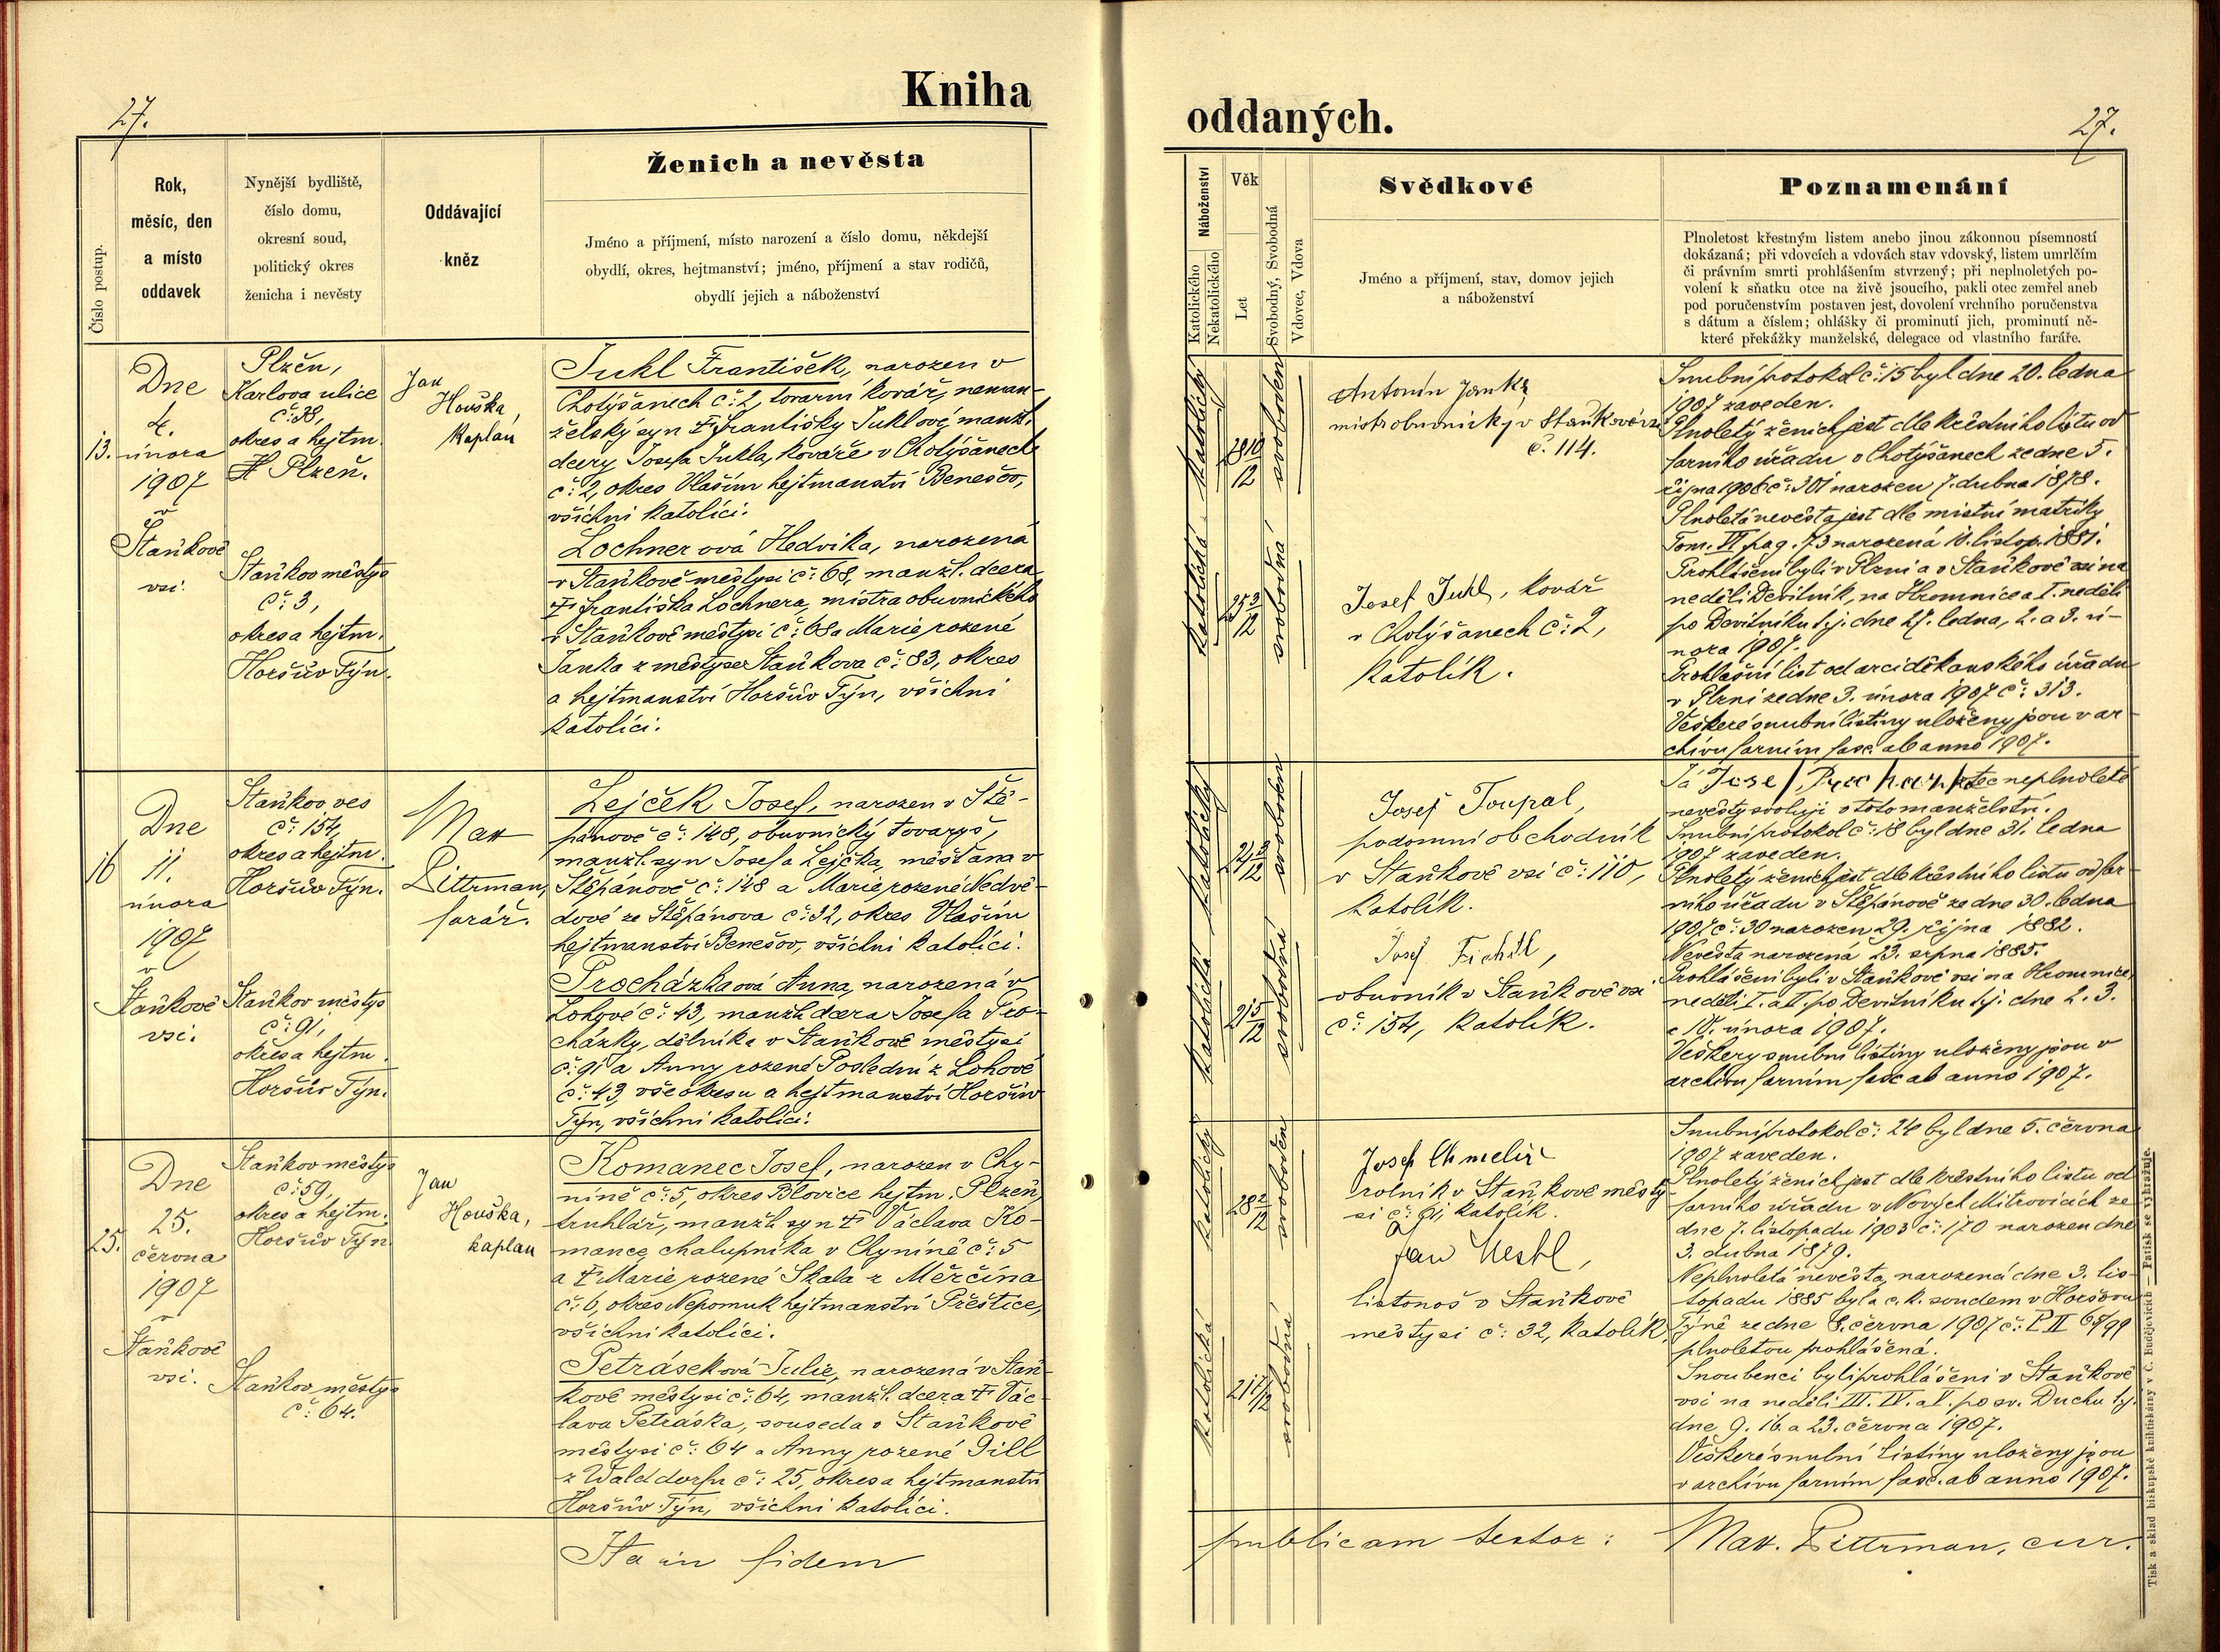 Kniha
27.
Číslo postup.
Rok,
měsíc, den
a místo
oddavek
Nynější bydliště,
číslo domu,
okresní soud,
politický okres
ženicha i nevěsty
Oddávající
kněz
Ženich a nevěsta
Jméno a příjmení, místo narození a číslo domu, někdejší
obydlí, okres, hejtmanství; jméno, příjmení a stav rodičů,
obydlí jejich a náboženství
13.
Dne
4.
února
1907
v
Staňkově
vsi.
Plzeň,
Karlova ulice
č: 38,
okres a hejtm.
Plzeň.
Staňkov městys
č: 3,
okres a hejtm.
Horšův Týn.
Jan
Houška,
kaplan
Jukl František, narozen v
Chotýšanech č: 2, tovární kovář, neman-
želský syn † Františky Juklové, manž.
dcery Josefa Jukla, kováře v Chotýšanech
č: 2, okres Vlašim hejtmanství Benešov,
všichni katolíci.
Lochnerová Hedvika, narozená
v Staňkově městysi č: 68, manžl. dcera
† Františka Lochnera, mistra obuvnického
v Staňkově městysi č: 68 a Marie rozené
Janka z městyse Staňkova č: 83, okres
a hejtmanství Horšův Týn, všichni
katolíci.
16
Dne
11.
února
1907
v
Staňkově
vsi.
Staňkov ves
č: 154,
okres a hejtm.
Horšův Týn.
Staňkov městys
č: 91,
okres a hejtm.
Horšův Týn.
Mat
Pittrman,
farář.
Lejček Josef, narozen v Ště-
pánově č: 148, obuvnický tovaryš,
manžl. syn Josefa Lejčka, měšťana v
Štěpánově č: 148 a Marie rozené Nedvě-
dové ze Štěpánova č: 32, okres Vlašim
hejtmanství Benešov, všichni katolíci.
Procházkaová Anna, narozená v
Lohově č: 43, manžl. dcera Josefa Pro-
cházky, dělníka v Staňkově městysi
č: 91 a Anny rozené Poslední z Lohově
č: 43 vše okresu a hejtmanství Horšův
Týn, všichni katolíci.
25.
Dne
25.
června
1907
v
Staňkově
vsi.
Staňkov městys
č: 59,
okres a hejtm.
Horšův Týn
Staňkov městys
č: 64.
Jan
Houška,
kaplan
Komanec Josef, narozen v Chy-
níně č: 5, okres Blovice hejtm. Plzeň,
truhlář, manžl. syn † Václava Ko-
mance, chalupníka v Chyníně č: 5
a † Marie rozené Skala z Měrčína
č: 6, okres Nepomuk hejtmanství Přeštice,
všichni katolíci.
Petráseková Julie, narozená v Staň-
kově městysi č: 64, manžl. dcera † Vác-
lava Petráska, souseda v Staňkově
městysi č: 64 a Anny rozené Dill
z Walddorfu č: 25, okres a hejtmanství
Horšův Týn, všichni katolíci.
Ita in fidem
oddaných.
27.
Náboženství
Katolického
Nekatolického
Věk
Let
Svobodný, Svobodná
Vdovec, Vdova
Svědkové
Jméno a příjmení, stav, domov jejich
a náboženství
Poznamenání
Plnoletost křestným listem anebo jinou zákonnou písemností
dokázaná; při vdovcích a vdovách stav vdovský, listem umrlčím
či právním smrti prohlášením stvrzený; při neplnoletých po-
volení k sňatku otce na živě jsoucího, pakli otec zemřel aneb
pod poručenstvím postaven jest, dovolení vrchního poručenstva
s dátum a číslem; ohlášky či prominutí jich, prominutí ně-
které překážky manželské, delegace od vlastního faráře.
katolický
28 10/12
svoboden
katolická
25 3/12
svobodná
Antonín Janka
mistr obuvnický v Staňkově vsi
č. 114.
Josef Jukl, kovář
v Chotýšanech č: 2,
katolík.
Snubní protokol č: 15 byl dne 20. ledna
1907 zaveden.
Plnoletý ženich jest dle křestního listu od
farního úřadu v Chotýšanech ze dne 5.
října 1906 č: 301 narozen 7. dubna 1878.
Plnoletá nevěsta jest dle místní matriky
Tom. VI pag. 73 narozená 10. listop. 1881.
Prohlášeni byli v Plzni a v Staňkově vsi na
neděli Devítník, na Hromnice a I. neděli
po Devítníku t.j. dne 27. ledna, 2. a 3. ú-
nora 1907.
Prohlašní list od arciděkanského úřadu
v Plzni ze dne 3. února 1907 č: 313.
Veškeré snubní listiny uloženy jsou v ar-
chivu farním fasc. ab anno 1907.
katolický
24 3/12
svoboden
katolická
21 5/12
svobodná
Josef Toupal,
podomní obchodník
v Staňkově vsi č: 110,
katolík.
Josef Fichtl,
obuvník v Staňkově vsi
č: 154, katolík.
Já Josef Procházka otec neplnoleté
nevěsty svoluji v toto manželství.
Snubní protokol č: 18 byl dne 31. ledna
1907 zaveden.
Plnoletý ženich jest dle křestního listu od far-
ního úřadu v Štěpánově ze dne 30. ledna
1907 č: 30 narozen 29. října 1882.
Nevěsta narozená 23. srpna 1885.
Prohlášeni byli v Staňkově vsi na Hromnice,
neděli I. a II. po Devítníku t.j. dne 2. 3.
a 10. února 1907.
Veškery snubní listiny uloženy jsou v
archivu farním fasc ab anno 1907.
katolický
28 2/12
svoboden
katolická
21 7/12
svobodná
Josef Chmelíř
rolník v Staňkově městy-
si č: 91, katolík.
a
Jan Nestl,
listonoš v Staňkově
městysi č: 32, katolík
Snubní protokol č: 24 byl dne 5. června
1907 zaveden.
Plnoletý ženich jest dle křestního listu od
farního úřadu v Nových Mitrovicích ze
dne 7. listopadu 1903 č: 170 narozen dne
3. dubna 1879.
Neplnoletá nevěsta, narozená dne 3. lis-
topadu 1885 byla c. k. soudem v Horšovu
Týně ze dne 8. června 1907 č: P II 68/99
plnoletou prohlášená.
Snoubenci byli prohlášeni v Staňkově
vsi na neděli III. IV. a V. po sv. Duchu t.j.
dne 9. 16. a 23. června 1907.
Veškeré snubní listiny uloženy jsou
v archivu farním fasc. ab anno 1907.
publicam testor: Mat. Pittrman, cur.
Tisk a sklad biskupské knihtiskárny v Č. Budějovicích — Patisk se vyhražuje.